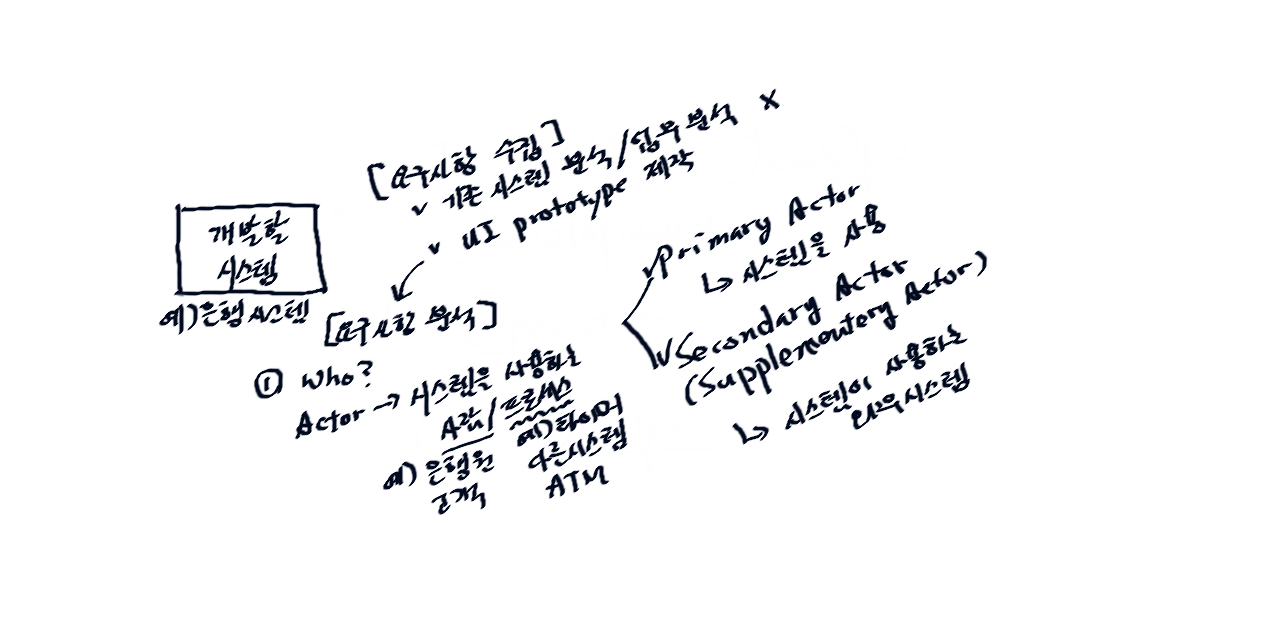 [요구사항 수집]
v 기존 시스템 분석/업무분석 x
v UI prototype 제작
개발할
시스템
예)은행시스템
[요구사항 분석]
① who?
Actor → 시스템을 사용하는
사람/프로세스
예)은행원 예)타이머
고객 다른시스템
ATM
v Primary Actor
↳ 시스템을 사용
v Secondary Actor
(Supplementery Actor)
↳ 시스템이 사용하는
외부시스템